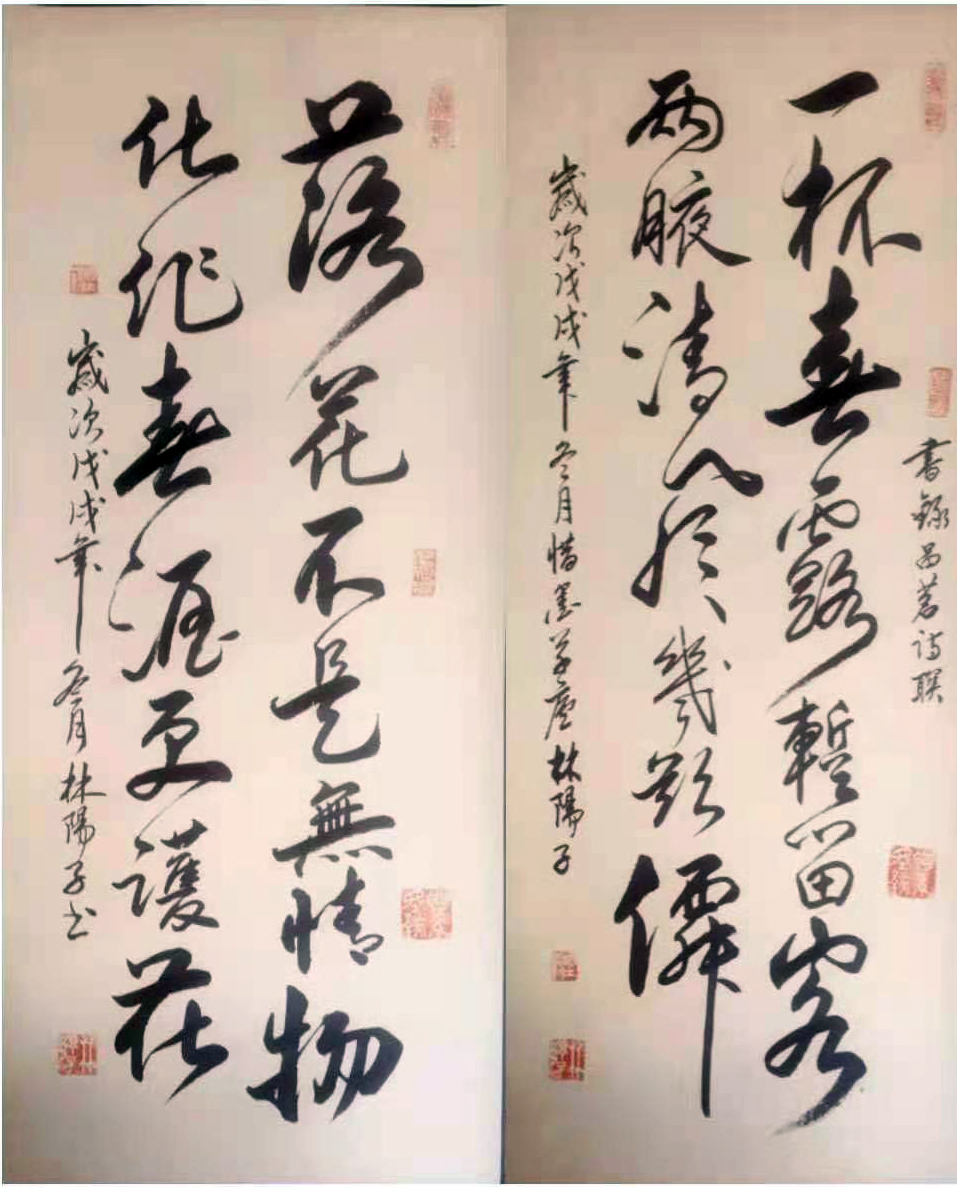 一杯春露暫留客
書錄品茗詩聯
兩腋清風幾欲僊
歲次戊戌年冬月惜墨草廬林陽子
落花不是無情物
化作春泥更護花
歲次戊戌年冬月林陽子书